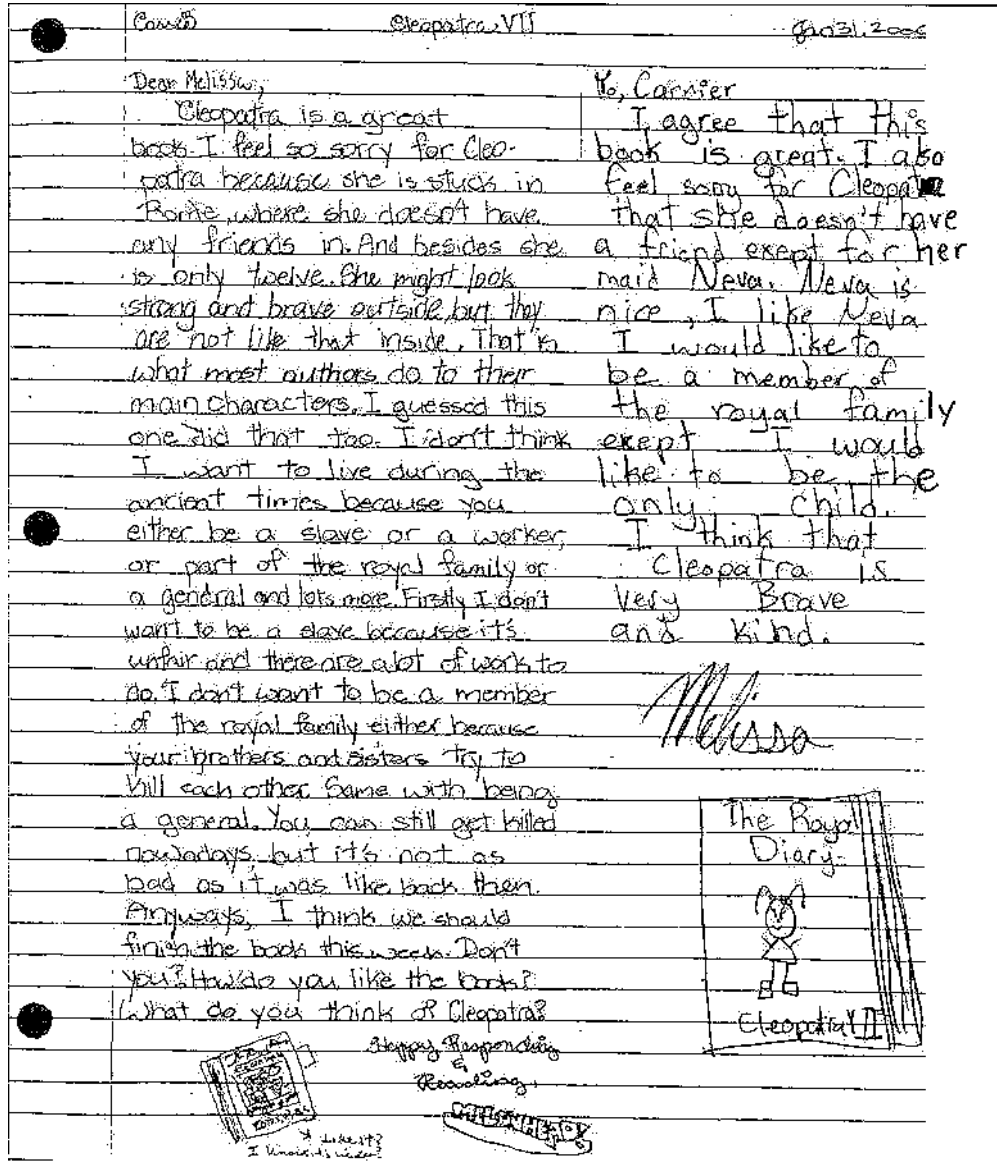 Cleopatra VII
Jan 31, 2006
Dear Melissa,
Cleopatra is a great
book. I feel so sorry for Cleo-
patra because she is stuck in
Rome, where she doesn't have
any friends in. And besides she
is only twelve. She might look
strong and brave outside, but they
are not like that inside. That is
what most authors do to their
main characters. I guessed this
one did that too. I don't think
I want to live during the
ancient times because you
either be a slave or a worker,
or part of the royal family or
a general and lots more. Firstly I don't
want to be a slave because it's
unfair and there are alot of work to
do. I don't want to be a member
of the royal family either because
your brothers and sisters try to
kill each other. Same with being
a general. You can still get killed
nowadays, but it's not as
bad as it was like back then.
Anyways, I think we should
finish the book this week. Don't
you? How do you like the book?
What do you think of Cleopatra?
Happy Responding
&
Reading,
Like it?
Yo, Carrier
I agree that this
book is great. I also
feel sorry for Cleopatra
that she doesn't have
a friend exept for her
maid Neva. Neva is
nice, I like Neva
I would like to
be a member of
the royal family
exept I would
like to be the
only child.
I think that
Cleopatra is
very Brave
and kind.
Melissa
The Royal
Diary-
Cleopatra VII